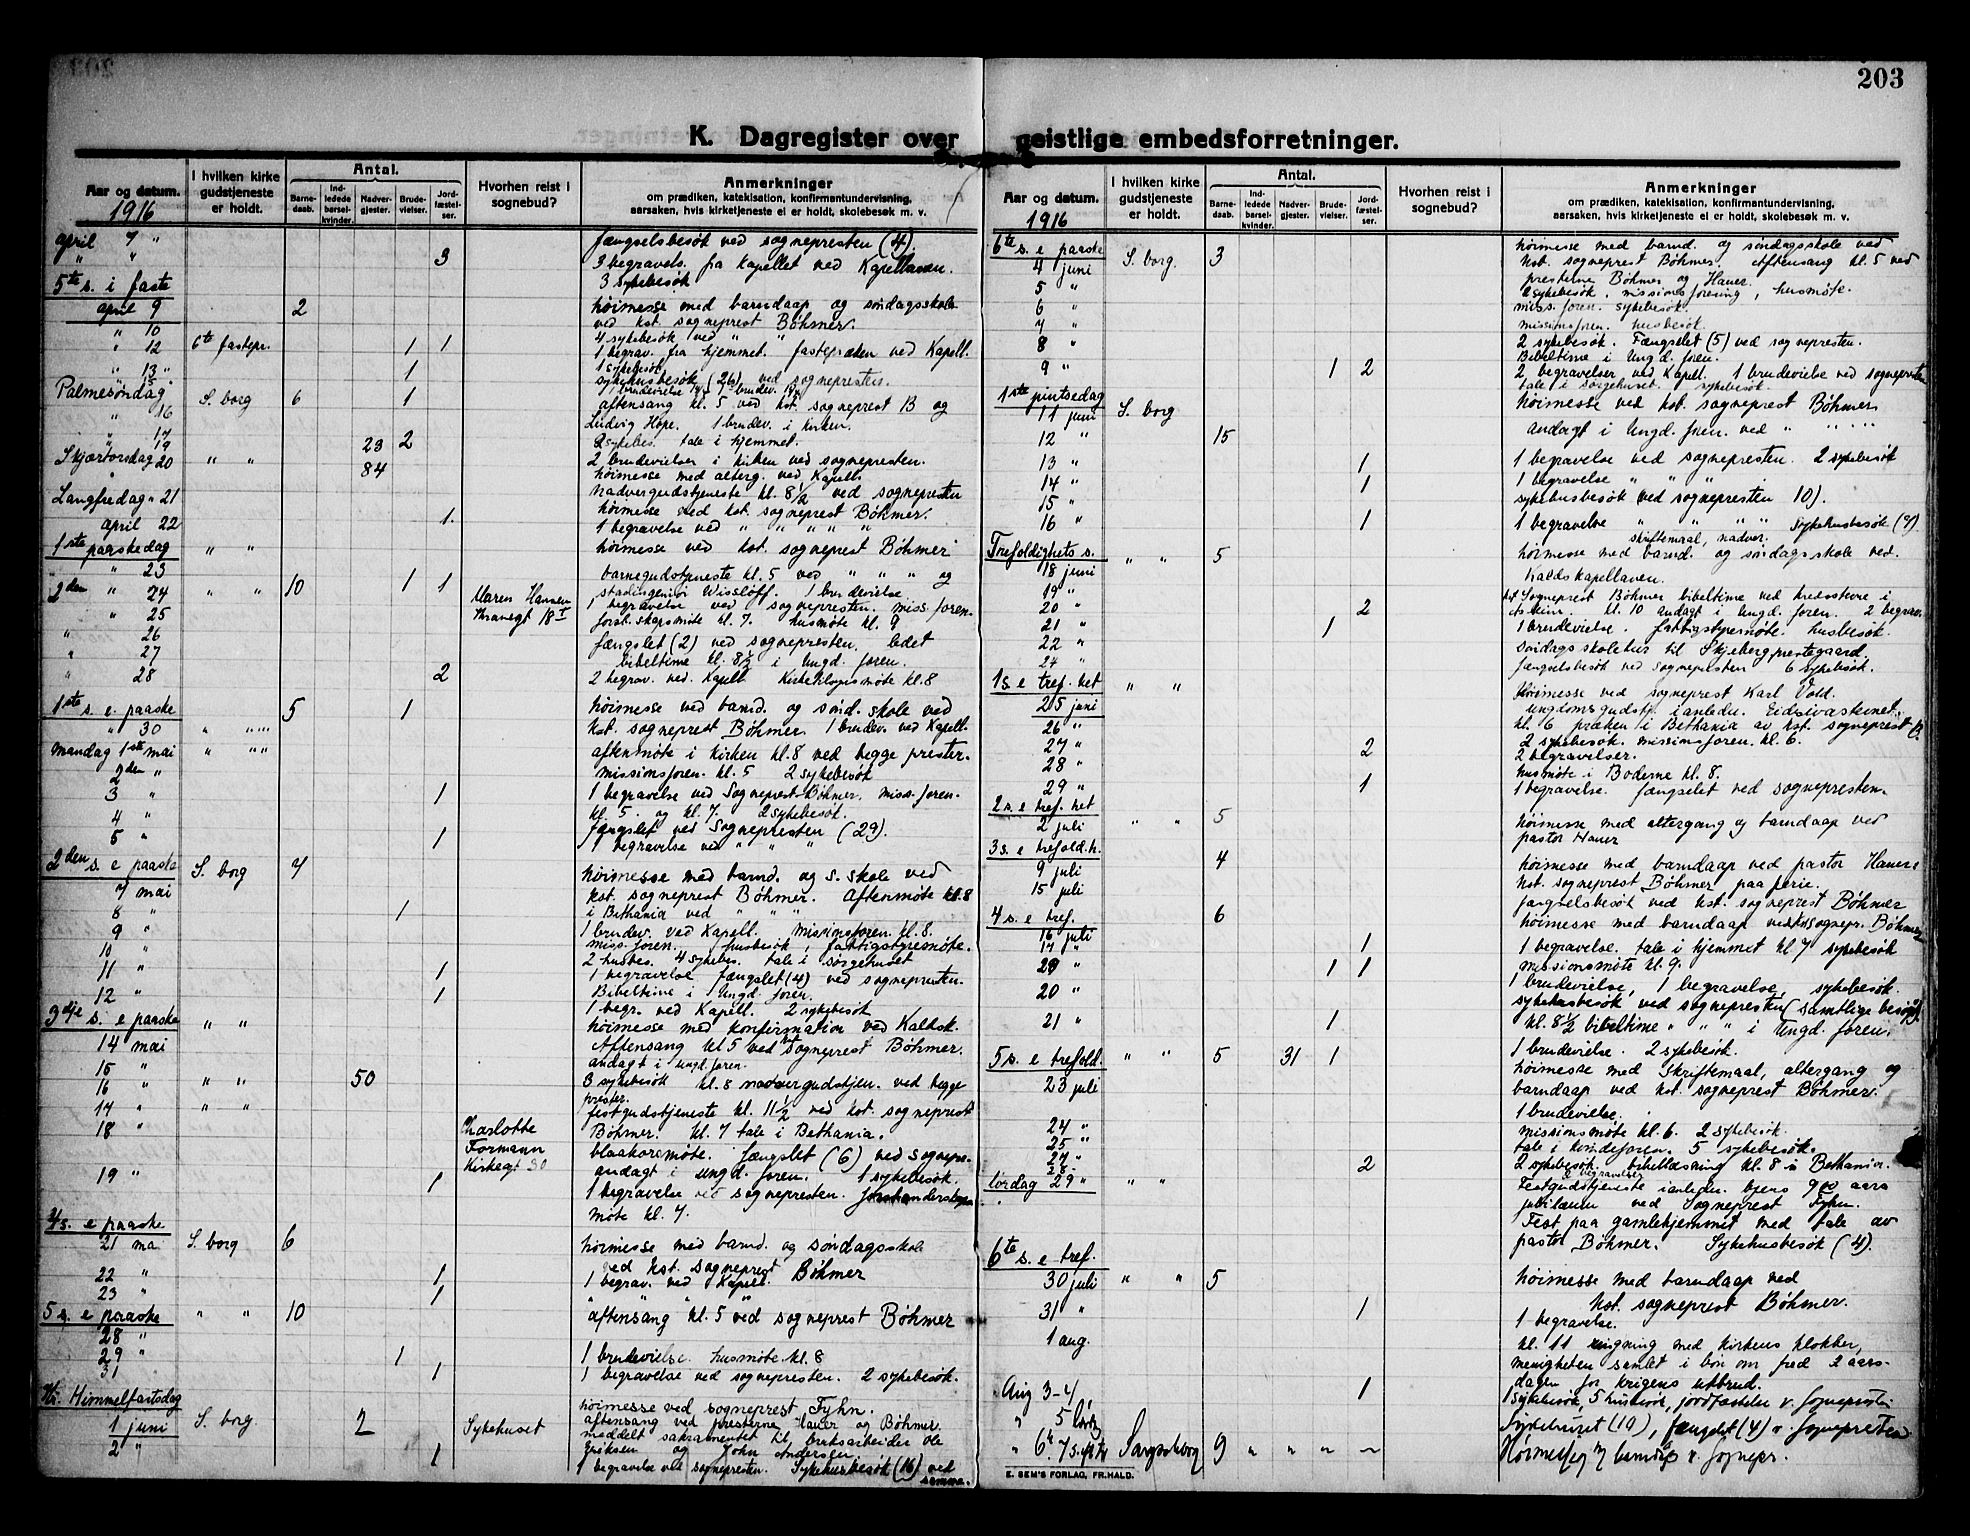 203
K. Dagregister over geistlige embedsforretninger.
Aar og datum. 1916
I hvilken kirke gudstjeneste er holdt.
Antal.
Barnedaab.
Indledede barselkvinder.
Nadvergjester.
Brudevielser.
Jordfæstelser.
Hvorhen reist i sognebud?
Anmerkninger
om prædiken, katekisation, konfirmantundervisning,
aarsaken, hvis kirketjeneste ei er holdt, skolebesøk m. v.
april 7 " fængselsbesøk ved sognepresten (4).
" " 3 3 begravels. fra Kapellet ved Kapellanen.
3 sykebesøk
5te s. i faste
april 9 2 høimesse med barndaap og søndagsskole
ved kst. sogneprest Bøhmer.
" 10 4 sykebesøk ved " "
" 12 6te fastepr. 1 1 1 begrav. fra hjemmet. fastepræken ved Kapell.
1 sykebesøk
" 13 " 1 sykehusbesøk (26) ved sognepresten.
Palmesøndag
" 16 S. borg 6 1 aftensang kl. 5 ved kst. sogneprest B og
Ludvig Hope. 1 brudev. i kirken.
" 17 2 sykebes. tale i hjemmet.
" 19 23 2 2 brudevielser i kirken ved sognepresten.
Skjærtorsdag 20 " " 84 høimesse med alterg. ved Kapell.
nadvergudstjeneste kl. 8½ ved sognepresten
Langfredag " 21 høimesse ved kst. sogneprest Bøhmer.
april 22 1. 1 begravelse ved " " " " "
1ste paaskedag " " høimesse ved kst. sogneprest Bøhmer
" 23 barnegudstjeneste kl. 5 ved " " " og
2den " 24 " " 10 1 1 Maren Hansen stadsingeniør Wisløff. 1 brudevielse.
1 begravelse ved sognepresten. miss. foren.
" 25 18I forst.skapsmøte kl. 7. husmøte kl. 9
" 26 fængslet (2) ved sognepresten. ledet
" 27 bibeltime kl. 8½ i Ungd. foren.
" 28 2 2 begrav. ved. Kapell. kl. 8
1ste s. e. paaske 5 1 høimesse ved barnd. og sønd. skole ved
" 30 " " " " kst. sogneprest Bøhmer. 1 brudev. ved Kapell.
mandag 1ste mai " " " aftenmøte i kirken kl. 8 ved begge prester.
2den " missionsforen. kl. 5 2 sykebesøk
3 " 1 1 begravelse ved Sogneprest Bøhmer. miss. foren.
4 " kl. 5. og kl. 7. 2 sykebesøk.
fængslet ved Sognepresten (29).
5 " 1 1 begravelse ved " " "
2den s. e paaske S. borg 7 høimesse med barnd. og s. skole ved
7 mai kst. sogneprest Bøhmer. Aftenmøte kl. 8
8 " 1 i Bethania ved " " "
9 " 1 brudev. ved Kapell. missionsforen. kl. 8.
10 " miss. foren. husbesøk, fattigstyremøte.
2 husbes. 4 sykebes. tale i sørgehuset
11 " 1 1 begravelse fængslet (4) ved sognepresten.
12 " 1 Bibeltime i Ungd. foren.
1 begr. ved Kapell. 2 sykebesøk
3dje s. e paaske " " høimesse med konfirmation ved Kaldsk.
14 mai Aftensang kl 5 ved Sogneprest Bøhmer.
15 " andagt i ungd. foren.
16 " " " 50 3 sykebesøk kl. 8 nadvergudstjen. ved begge
prester.
17 " " " festgudstjeneste kl. 11½ ved kst. sogneprest
18 " Charlotte Formann Kirkegt 30 Bøhmer. kl. 7 tale i Bethania.
blaakorsmøte. fængslet (6) ved sognepr.
19 " 1 andagt i ungd. foren. 1 sykebesøk.
1 begravelse ved sognepresten.
møte kl. 7.
4 s. e paaske
21 ma S. borg 6 høimesse med barnd. og søndagsskole
ved kst. Sogneprest Bøhmer
22 " 1 1 begrav. ved Kapell.
23 " 1 " " " "
5 s. e paaske " " 10 aftensang kl. 5 ved sogneprest Bøhmer
28 "
29 " 1 1 brudevielse. husmøte kl. 8
31 1 1 begravelse ved sognepresten. 2 sykebesøk.
Kr. Himmelfartsdag høimesse ved sogneprest Fyhn.
1 juni S. borg. 2 Sykehuset aftensang ved presterne Hauer og Bøhmer
meddelt sakramentet til bruksarbeider Ole
Eriksen og John Andersen.
2 " 1 1 begravelse ved sognepresten. Sykehusbesøk (16) ved
samme.
Aar og datum. 1916
I hvilken kirke gudstjeneste er holdt.
Antal.
Barnedaab.
Indledede barselkvinder.
Nadvergjester.
Brudevielser.
Jordfæstelser.
Hvorhen reist i sognebud?
Anmerkninger
om prædiken, katekisation, konfirmantundervisning,
aarsaken, hvis kirketjeneste ei er holdt, skolebesøk m. v.
6te s. e paaske høimesse med barnd. og søndagsskole ved
4 juni S. borg. 3 kst. sogneprest Bøhmer. Aftensang kl. 5 ved
presterne Bøhmer og Hauer.
5 " 2 sykebesøk. missionsforening, husmøte.
6 " miss. foren. sykebesøk.
7 " missionsforen. husbesøk.
8 " 2 sykebesøk. Fængslet (5) ved sognepresten.
Bibeltime i Ungd. foren.
9 " 1 2 2 begravelser ved Kapell. 1 brudevielse ved sognepresten
tale i sørgehuset. sykebesøk.
1ste pintsedag høimesse ved kst. sogneprest Bøhmer
11 juni S. borg
andagt i Ungd. foren. ved " " " "
12 " 15
13 " 1 1 begravelse ved sognepresten. 2 sykebesøk
14 " 1 1 begravelse " " "
15 " sykehusbesøk ved sognepresten 10).
16 " 1 1 begravelse " " " " Sykehusbesøk (7)
skriftemaal, nadver.
Trefoldighets s. " " 5 høimesse med barnd. og søndagsskole ved.
18 juni Kaldskapellanen.
19 " Sogneprest Bøhmer bibeltime ved kredsstevne i
20 " 2 kl. 10 andagt i Ungd. foren. 2 begrav.
21 " 1 1 brudevielse. fattigstyremøte. husbesøk.
22 " søndagsskoletur til Skjeberg prestegaard.
24 " fængselsbesøk ved sognepresten 6 sykebesøk.
1 s. e tref. het " " høimesse ved sogneprest Karl Vold.
25 juni ungdomsgudstj. ianledn. Eidsivastevnet.
26 " kl. 6 præken i Bethania av kst. sogneprest B.
2 sykebesøk. missionsforen. kl. 6.
27 " 2 2 begravelser.
28 " husmøte i Boderne kl. 8.
29 " 1 1 begravelse. fængslet ved sognepresten.
2 s. e tref. het
2 juli " " 5 høimesse med altergang og barndaap ved
pastor Hauer
3 s. e trefold.h. 4 høimesse med barndaap ved pastor Hauer
9 juli kst. sogneprest Bøhmer paa ferie.
15 juli fængselsbesøk ved kst. sogneprest Bøhmer
4 s. e tref. 6 høimesse med barndaap ved kst sognepr. Bøhmer
16 juli
17 " 1 1 begravelse. tale i hjemmet kl. 7 sykebesøk
missionsmøte kl. 9.
" 1 1 1 brudevielse, 1 begravelse, sykebesøk.
20 " sykehusbesøk ved sognepresten (samtlige besøgt).
21 " 1 kl. 8½ bibeltime " " " i Ungd. foren.
1 brudevielse. 2 sykebesøk.
5 s. e trefold. " " 5 31 1 høimesse med Skriftemaal, altergang og
23 juli barndaap ved kst. sogneprest Bøhmer.
1 brudevielse.
24 " missionsmøte kl. 6. 2 sykebesøk.
25 " tale i kvindeforen. 5 sykebesøk.
27 " 2 sykebesøk. bibellæsning kl. 8 i Bethania.
28. 2 2 begravelser
lørdag 29 " " " Festgudstjeneste ianledn. byens 900 aars
jubilæum ved Sogneprest Fyhn.
Fest paa gamlehjemmet med tale av
pastor Bøhmer. Sykehusbesøk (4).
6te s. e tref.
30 juli " " 5 høimesse med barndaap ved
kst. sogneprest Bøhmer.
31 " 1 1 begravelse.
1 aug. kl. 11 ringning med kirkens klokker,
menigheten samlet i bøn om fred 2 aars-
dagen for krigens utbrud.
Aug 3-4 1 1 Sykebesøk, 5 husbesøk, jordfæstelse v. Sognepresten
" 5 Sykehuset (10), fængslet (4) v. Sognepresten
" 6te 7 s. Sarpsborg 9 " " " " Høimesse m/ barnedåp v. Sognepr.
E. SEM'S FORLAG, FR.HALD.